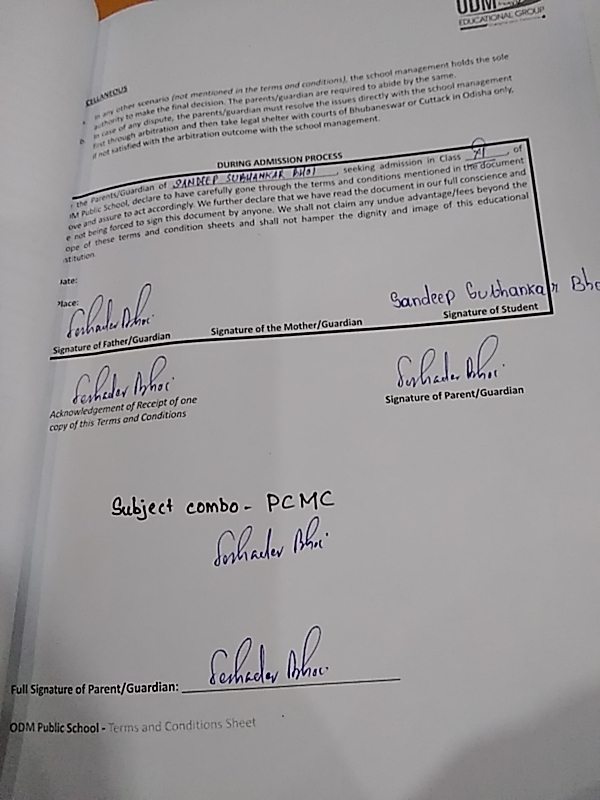 ODM
EDUCATIONAL GROUP
CELLANEOUS
a. In any other scenario (not mentioned in the terms and conditions), the school management holds the sole
authority to make the final decision. The parents/guardian are required to abide by the same.
b. In case of any dispute, the parents/guardian must resolve the issues directly with the school management
first through arbitration and then take legal shelter with courts of Bhubaneswar or Cuttack in Odisha only,
if not satisfied with the arbitration outcome with the school management.
DURING ADMISSION PROCESS
the Parents/Guardian of SANDEEP SUBHANKAR BHOI, seeking admission in Class XI, of
M Public School, declare to have carefully gone through the terms and conditions mentioned in the document
ove and assure to act accordingly. We further declare that we have read the document in our full conscience and
e not being forced to sign this document by anyone. We shall not claim any undue advantage/fees beyond the
ope of these terms and condition sheets and shall not hamper the dignity and image of this educational
stitution.
ate:
Place:
Seshadev Bhoi Sandeep Subhankar Bho
Signature of Father/Guardian Signature of the Mother/Guardian Signature of Student
Seshadev Bhoi Seshadev Bhoi
Acknowledgement of Receipt of one Signature of Parent/Guardian
copy of this Terms and Conditions
Subject combo - PCMC
Seshadev Bhoi
Full Signature of Parent/Guardian: Seshadev Bhoi
ODM Public School - Terms and Conditions Sheet